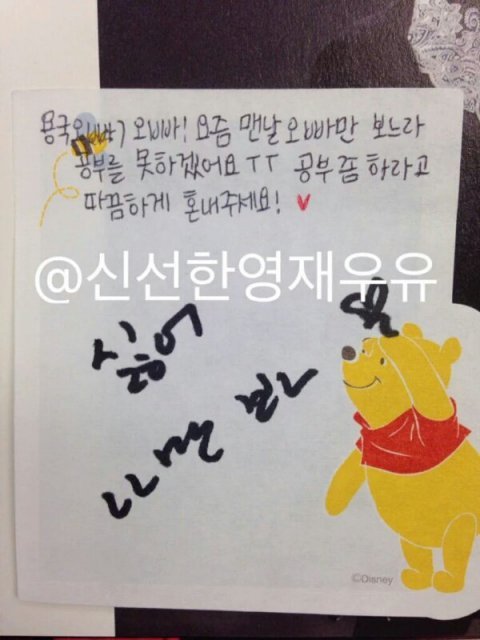 용국오빠 오빠! 요즘 맨날 오빠만 보느라
공부를 못하겠어요ㅜㅜ 공부좀 하라고
따끔하게 혼내주세요! ♥
@신선한영재우유
싫어
나만 봐
©Disney